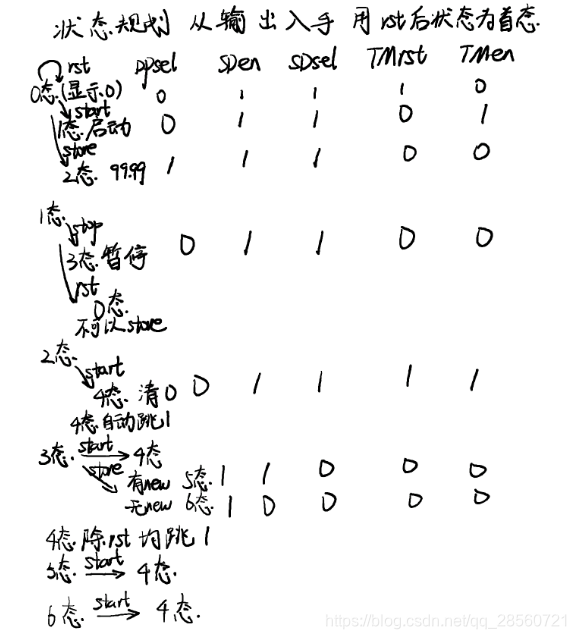 状态规划 从输出入手 用rst后状态为首态.
rst DPsel SDen SDsel TMrst TMen
0态(显示0) 0 1 1 1 0
start
1态.启动 0 1 1 0 1
store
2态. 99.99 1 1 1 0 0
1态.
stop
3态.暂停 0 1 1 0 0
rst
0态.
不可以store
2态.
start
4态. 清0 0 1 1 1 1
4态自动跳1
3态. start 4态
store
有new 5态. 1 1 0 0 0
无new 6态. 1 0 0 0 0
4态.除rst均跳1
5态. start 4态.
6态. start 4态.
https://blog.csdn.net/qq_28560721